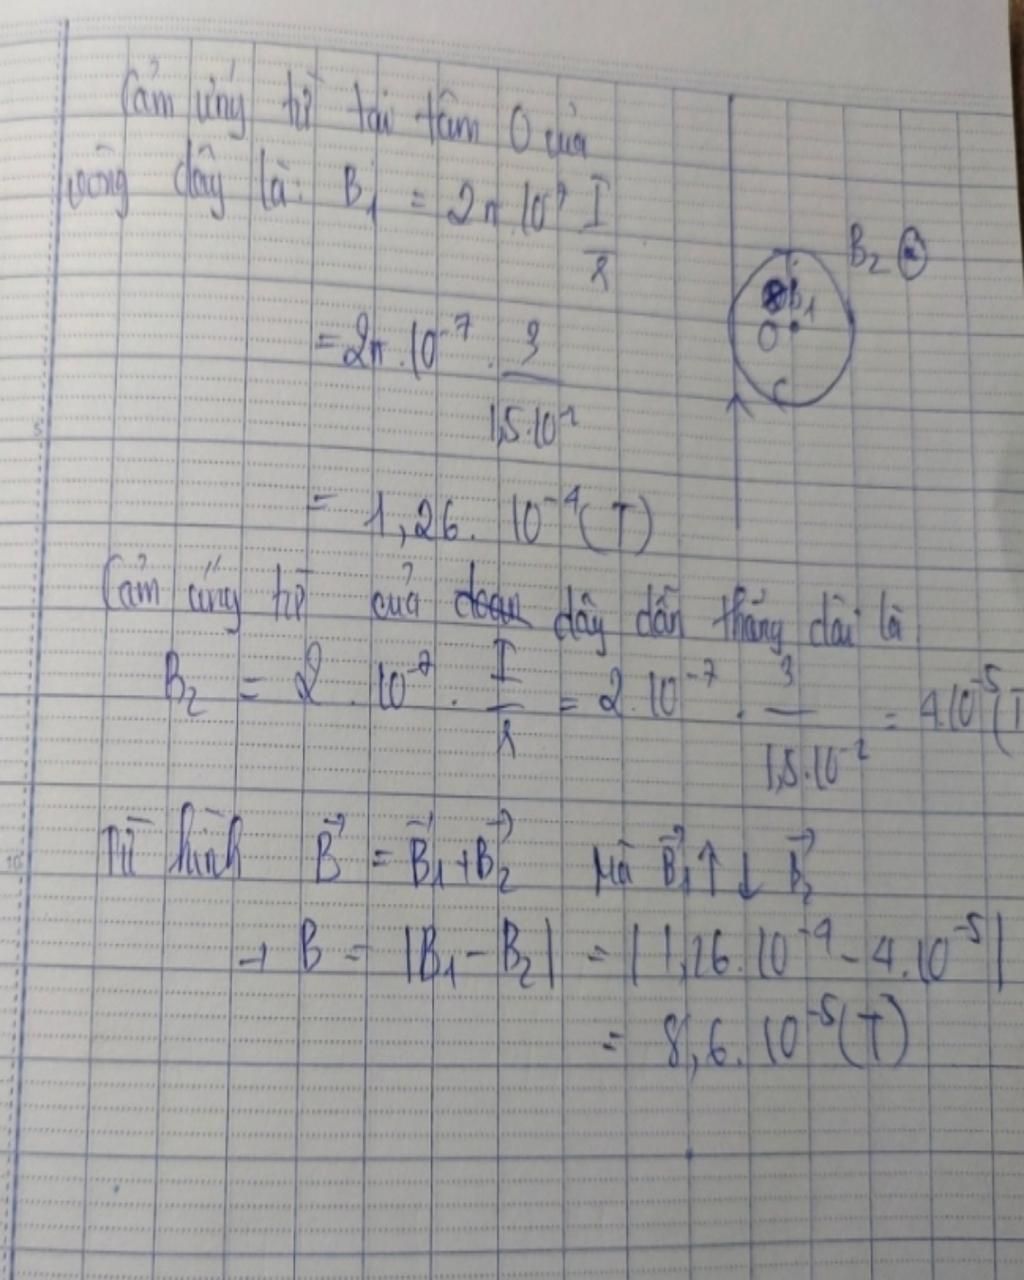 Cảm ứng từ tại tâm O của
vòng dây là: B₁ = 2π.10⁻⁷ I/R
= 2π.10⁻⁷ . 3/1,5.10⁻²
= 1,26. 10⁻⁴ (T)
B₂
B₁
O
Cảm ứng từ của dây dẫn thẳng dài là
B₂ = 2. 10⁻⁷ . I/R = 2.10⁻⁷ . 3/1,5.10⁻² = 4.10⁻⁵ (T
Từ hình B⃗ = B⃗₁ + B⃗₂ Mà B⃗₁ ↑↓ B⃗₂
→ B = |B₁ - B₂| = |1,26.10⁻⁴ - 4.10⁻⁵|
= 8,6. 10⁻⁵ (T)